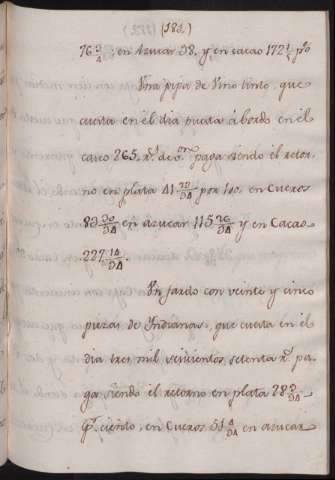 (181.)
76 3/4, en Azucar 98. y en cacao 172 1/2 p%
Una pipa de Vino tinto, que
cuesta en el dia puesta á bordo en el
caico 265. r.s de v.on paga siendo el retor-
no en plata 41 30/94 por 100. en Cueros
89 30/94 en azucar 115 26/94 y en Cacao
227 14/94.
Un fardo con veinte y cinco
piezas de Indianas, que cuesta en el
dia tres mil seiscientos, setenta r.s pa-
ga siendo el retorno en plata 28 3/94
p.r ciento, en Cueros 51 4/94 en azucar